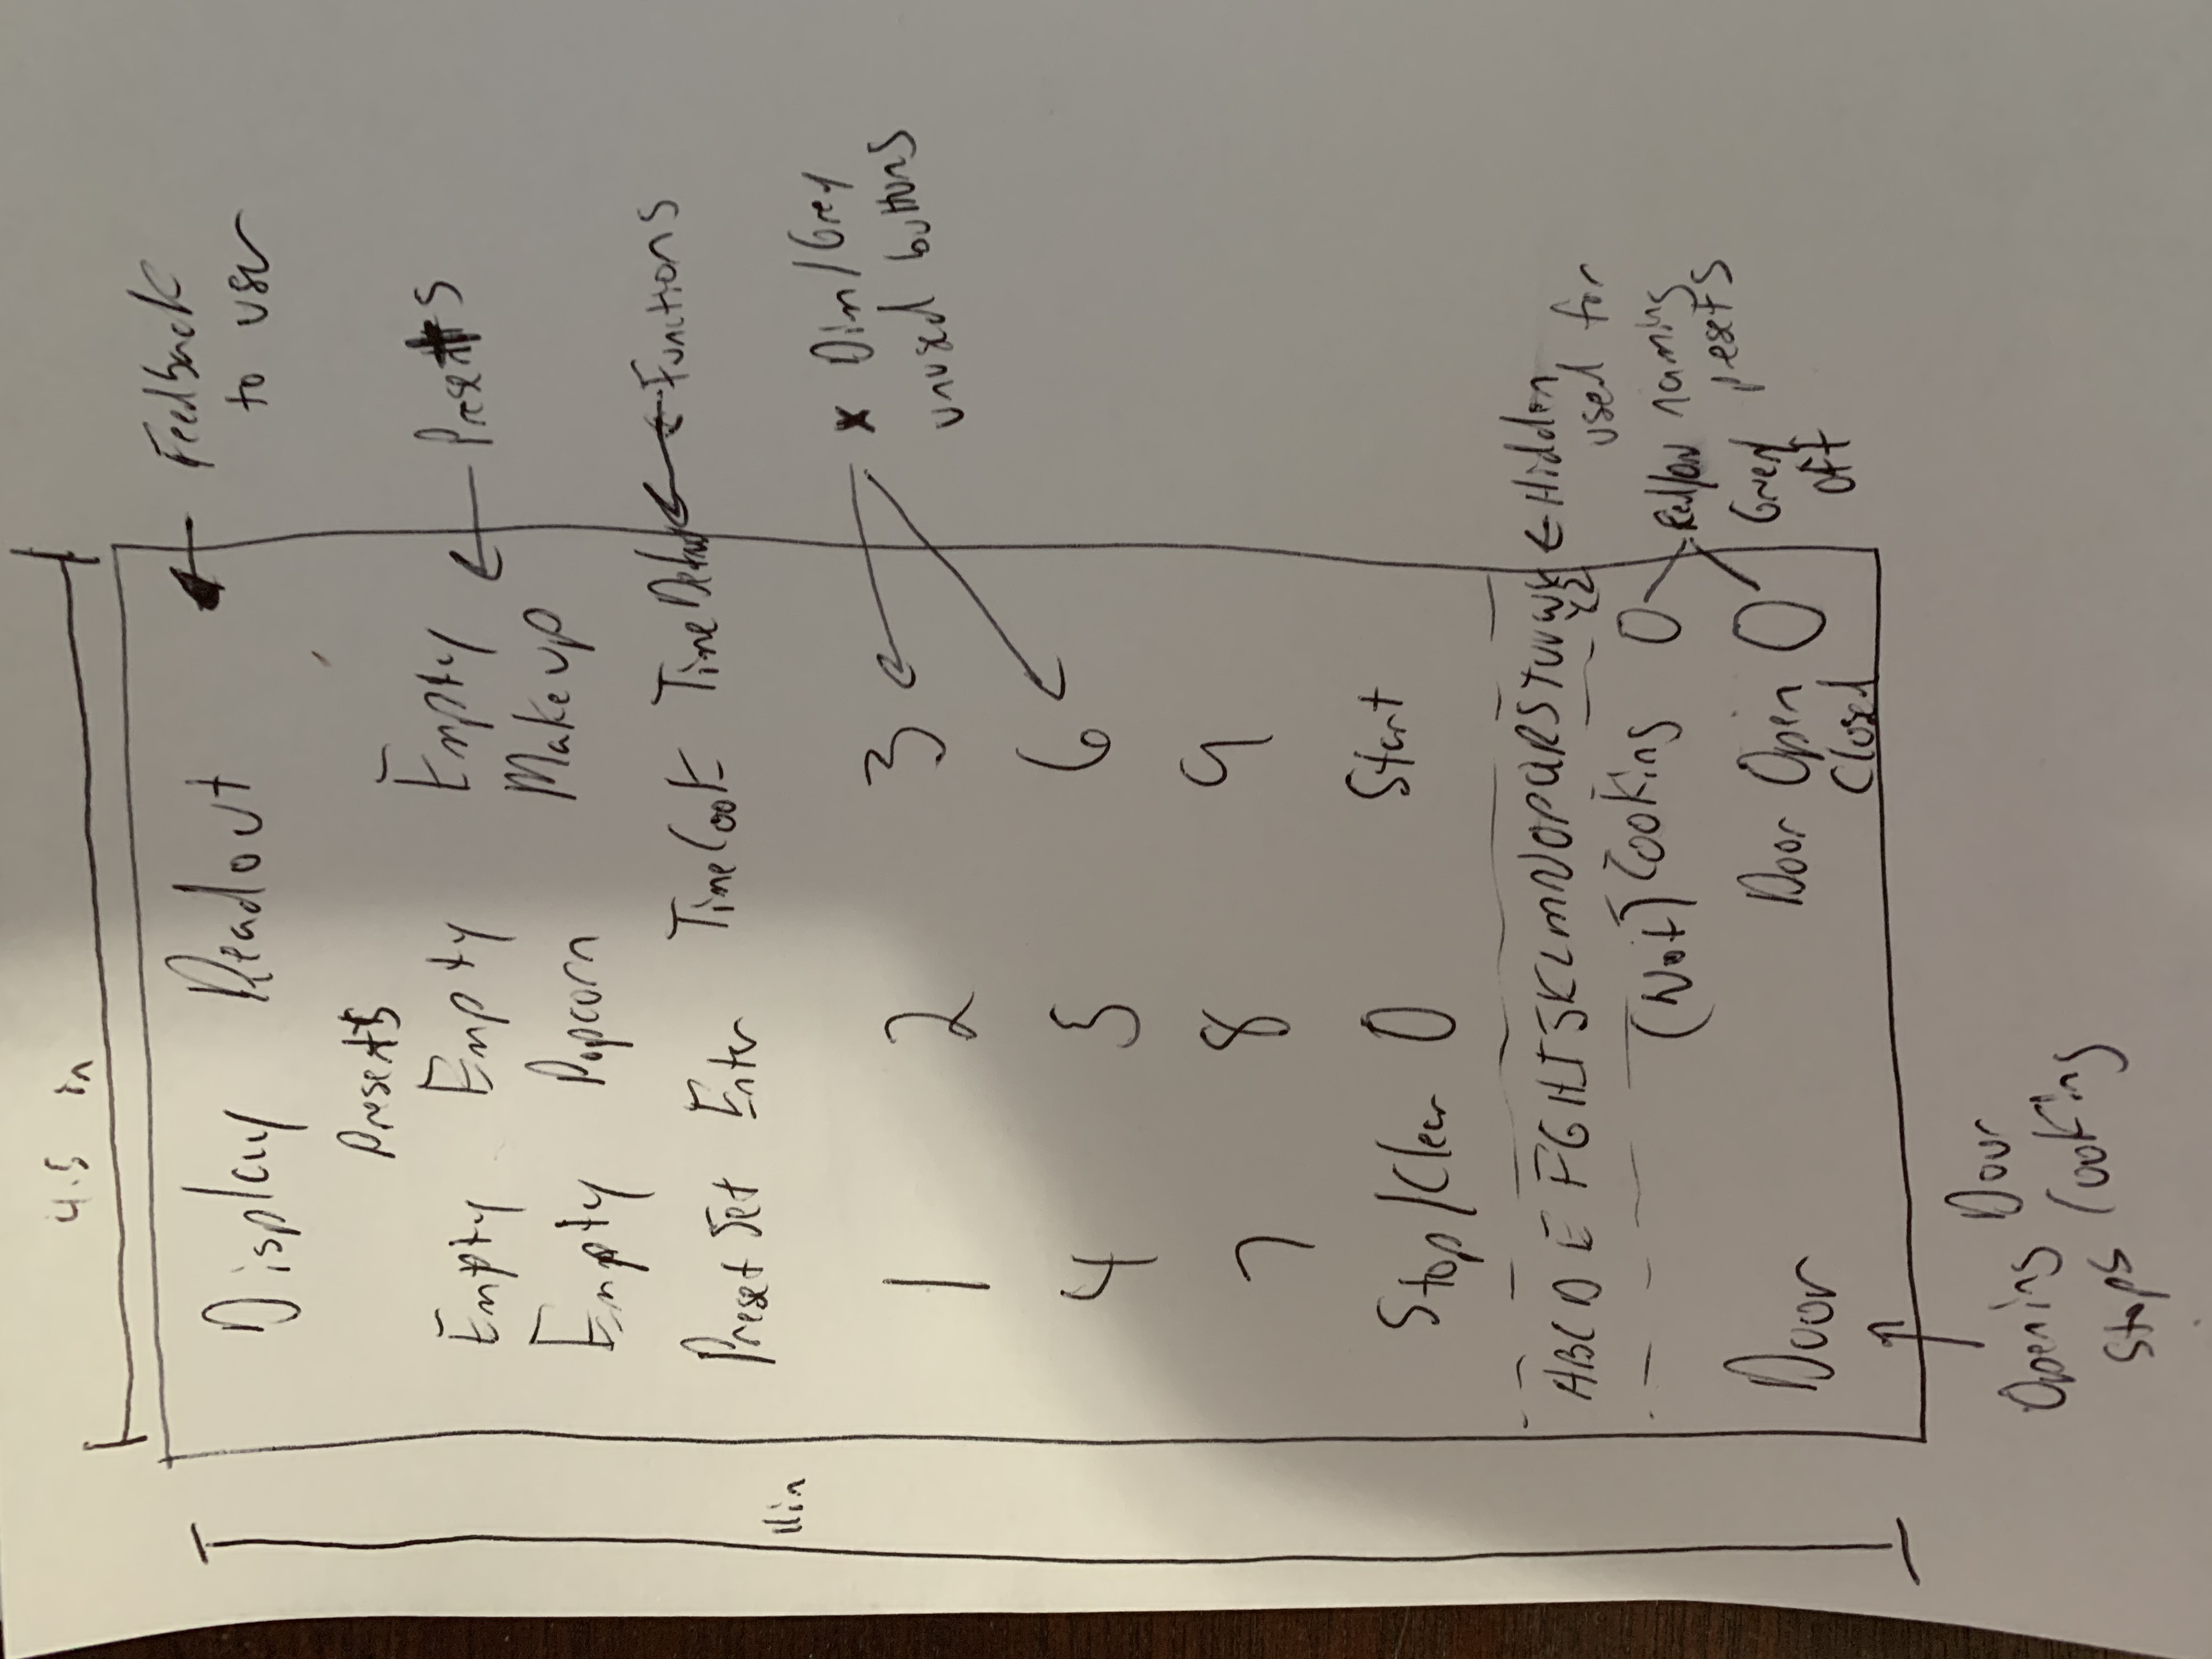 4.5 in
Display Readout
Feedback
to user
Presets
Empty Empty Empty
Presets
Empty Popcorn Makeup
Preset Set Enter Time Cook Time Defr
Functions
11in
1 2 3
* Dim/Grey
unused buttons
4 5 6
7 8 9
Stop/Clear 0 Start
ABCD E FGHIJKLMNOPQRSTUVWX
YZ
Hidden
used for
naming
presets
(Not) Cooking O
Red/on
Grey
off
Door
Door Open O
Closed
Opening Door
Stops Cooking